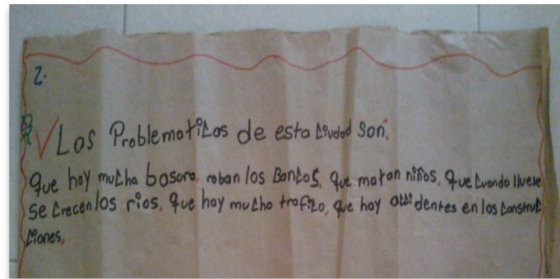 2.
R/ Las Problematicas de esta ciudad son.
que hay mucha basura, roban los Bancos, que matan niños, que cuando llueve
se crecen los rios, que hay mucho trafico, que hay accidentes en los construc
ciones,